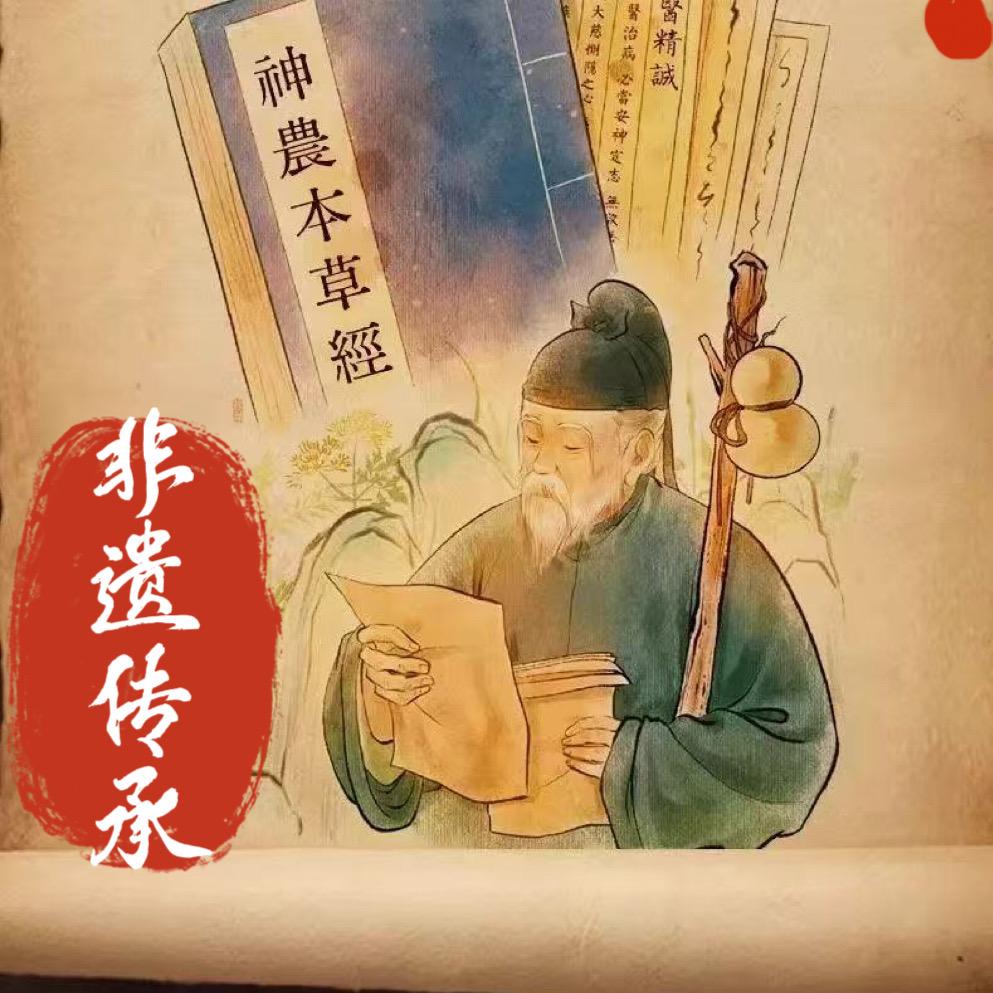 神農本草經
醫精誠
醫治病 必當安神定志 無欲
大慈惻隱之心
非遗传承